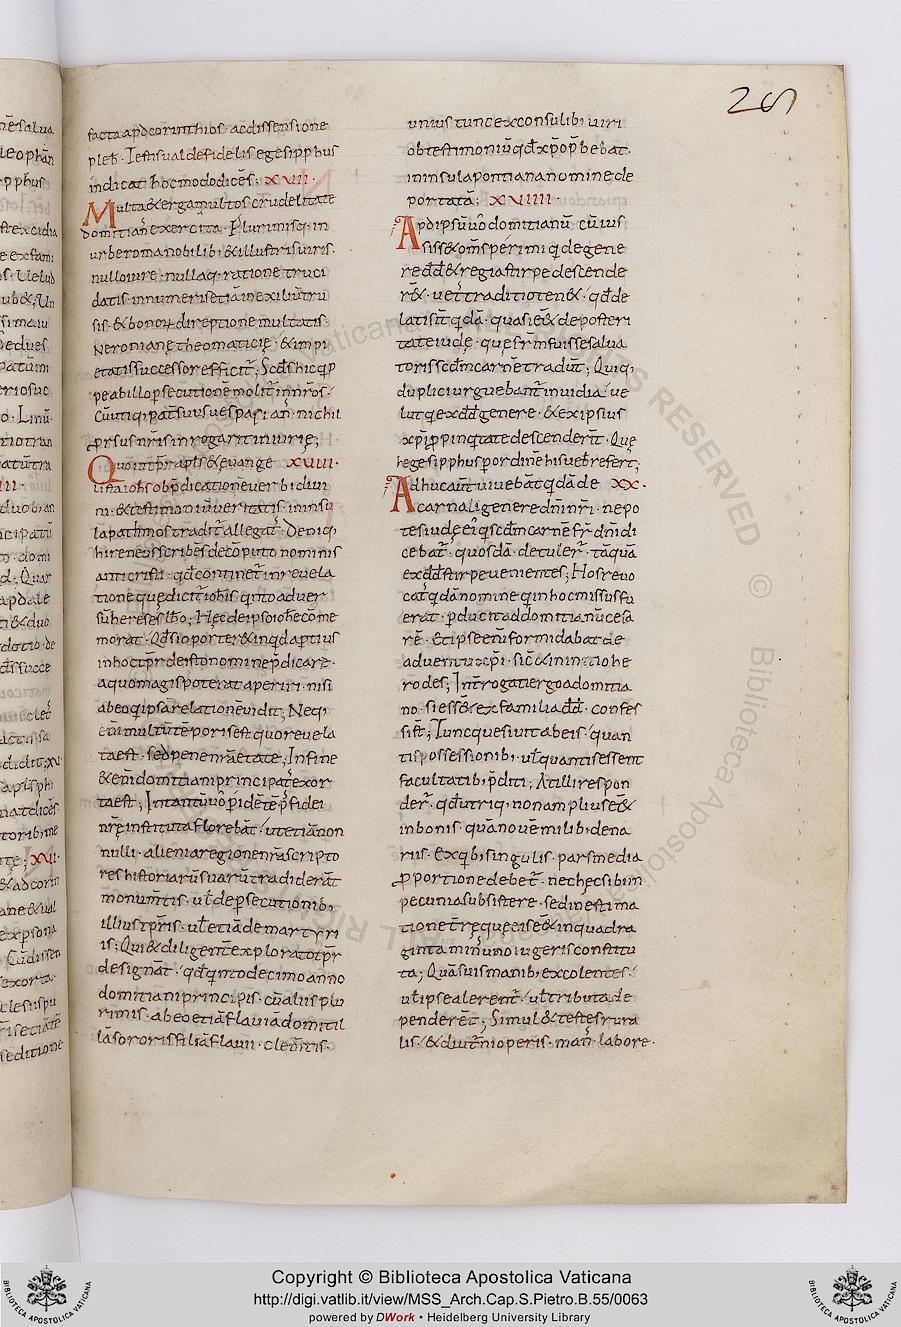 26
facta apd corinthios · ac dissensione
pleb̄ · Testis ualde fidelis egesipphus
indicat hoc modo dicēs; XVII ·
Multa & erga multos crudelitate
domitian' exercita · Plurimisq; in
urbe roma nobilib; & illustris uiris ·
nullo iure · nullaq; ratione truci
datis · innumeris etiā in exiliū tru
sis · & bonoꝝ direptione multatis ·
Neronianę theomaticię · & impi
etatis successor efficit'; Scd's hic q; p
pea b illo psecutione molit' in nr̄os ·
cū utiq; pat' suus uespasian' nichil
ꝑrsus nr̄is inrogarit iniurię;
Quo int'pr̄ apl's & euange XVIII ·
lista ioh's ob p̄dicationē uerbi diui
ni · & testimoniū ueritatis · in insu
la pathmos tradit' allegat'; Deniq;
hireneus scribēs de cōputo nominis
anticristi · qd' continet' in reuela
tione quę dicit' ioh'is · qinto aduer
sū hereses lib'o; Hęc de ipso ioh'e cōme
morat · Qd' si oporter & inqd aptius
in hoc tp̄r de isto nomine p̄dicare ·
a quo magis poterat aperiri · nisi
ab eo qi ipsa relationē uidit; Neq;
eni multū tēporis est quo reuela
ta est · sed pene nr̄a etate; In fine
& eni domitiani principat' exor
ta est; In tantū uo p̄ idē tēp' fidei
nr̄ę instituta florebāt / ut etiā non
nulli · alieni a regione nr̄a scripto
res historiarū suarū tradiderāt
monumtis · ul' de psecutionib;
illius tp̄ris · ul' etiā de martyri
is; Qui & diligent' explorato tp̄r
designāt · qd' qintodecimo anno
domitiani principis · cū aliis plu
rimis · ab eo etiā flauiā domitil
lā sororis filiā flauii · clem̄tis ·
unius tunc ex consulib; uiri
ob testimoniū qd' xp̄o p'hebebat ·
in insula pontiana nomine de
portatā; XVIIII ·
Apd ipsū uo domitianū · cū ius
siss & om̄s perimi q de gene
re dd' & regia stirpe descende
r& · uet' traditio ten& / qd' de
lati sīt qdā · quasi ēēnt de posteri
tate iudę · que fr̄m fuisse salua
toris scdm carnē tradūt; Qui q;
duplici urguebant' inuidia / ue
lut q; ex dd' genere · & ex ipsius
xp̄i ppinqtate descenderēt · Quę
hegesipphus p ordinē his ueb' refert;
Adhuc aūt uiuebāt qdā de XX ·
carnali genere dn̄i nr̄i · nepo
tes iudę ei' q scdm carnē fr' dn̄i di
cebat' · quos dā · detuler̄t · tāquā
ex dd' stirpe uenientes; Hos reuo
cat' qdā nomine q in hoc missus fu
erat · pducit ad domitianū cesa
rē · Et ipse eni formidabat de
aduentu xp̄i · sic' & in initio he
rodes; Int'rogati ergo a domitia
no · si essē̄t ex familia dd' · confes
si st'; Tunc quesiuit ab eis · quan
tis possessionib; ul' quantis essent
facultatib; p̄diti; At illi respon
der' · qd' utriq; non amplius ē̄&
in bonis · quā nouē milib; dena
riis · ex qb; singulis · pars media
ꝑportione debet' · nec hęc sibi in
pecunia subsistere · sed in estima
tione t'rę quę eis ē̄& in quadra
ginta min' uno iugeris constitu
ta; Quā suis manib; excolentes /
ul' ipse alerent' / ul' tributa de
penderēt; Simul & testes rura
lis / & diut'ni operis · man' labore ·
Copyright © Biblioteca Apostolica Vaticana
http://digi.vatlib.it/view/MSS_Arch.Cap.S.Pietro.B.55/0063
powered by DWork • Heidelberg University Library